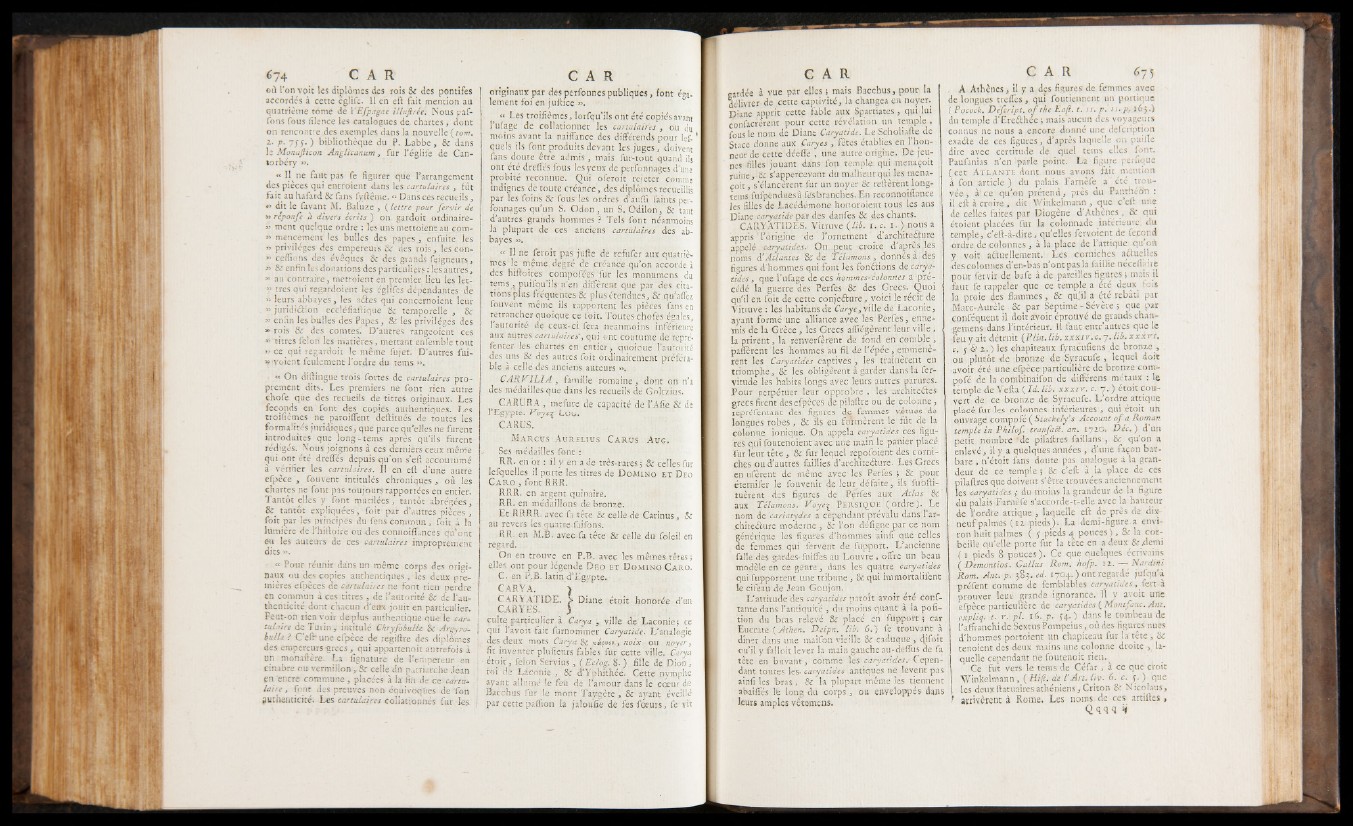 674 CAR
où l'on voit les diplômes des rois & des pontifes
accordés à cette église. Il en est fait mention au
quatrième tome de l'Espagne illustrée. Nous pas-
sons sous silence les catalogues de chartes, dont
on rencontre des exemples dans la nouvelle (tom.
2. p. 755.) bibliothèque du P. Labbe, & dans
le Monasticon Anglicanum, sur l'église de Can-
torbéry ».
« Il ne faut pas se figurer que l'arrangement
des pièces qui entroient dans les cartulaires, fût
fait au hasard & sans systême. « Dans ces recueils,
» dit le savant M. Baluze, (lettre pour servir de
» réponse à divers écrits) on gardoit ordinaire-
» ment quelque ordre : les uns mettoient au com-
» mencement les bulles des papes, ensuite les
» privilèges des empereurs & des rois, les con-
» cessions des évêques & des grands seigneurs,
» & enfin les donations des particuliers : les autres,
» au contraire, mettoient en premier lieu les let-
» tres qui regardoient les églises dépendantes de
» leurs abbayes, les actes qui concernoient leur
» juridiction ecclésiastique & temporelle, &
» enfin les bulles des Papes, & les privilèges des
» rois & des comtes. D'autres rangeoient ces
» titres selon les matières, mettant ensemble tout
» ce qui regardoit le même sujet. D'autres sui-
» voient seulement l'ordre du tems ».
« On distingue trois sortes de cartulaires pro-
prement dits. Les premiers ne sont rien autre
chose que des recueils de titres originaux. Les
seconds en sont des copies authentiques. Les
troisièmes ne paroissent destitués de toutes les
formalités juridiques, que parce qu'elles ne furent
introduites que long-tems après qu'ils furent
rédigés. Nous joignons à ces derniers ceux même
qui ont été dressés depuis qu'on s'est accoutumé
à vérifier les cartulaires. Il en est d'une autre
espèce, souvent intitulés chroniques, où les
chartes ne sont pas toujours rapportées en entier.
Tantôt elles y sont mutilées, tantôt abrégées,
& tantôt expliquées, soit par d'autres pièces,
soit par les principes du sens commun, soit à la
lumière de l'histoire ou des connoissances qu'ont
eu les auteurs de ces cartulaires improprement
dits ».
« Pour réunir dans un même corps des origi-
naux ou des copies authentiques, les deux pre-
mières espèces de cartulaires ne font rien perdre
en commun à ces titres, de l'autorité & de l'au-
thenticité dont chacun d'eux jouit en particulier.
Peut-on rien voir de plus authentique que le car-
tulaire de Turin, intitulé Chrysobulle & Argyro-
bulle ? C'est une espèce de registre des diplômes
des empereurs grecs, qui appartenoit autrefois à
un monastère. La signature de l'empereur en
cinabre ou vermillon, & celle du patriarche Jean
en encre commune, placées à la fin de ce cartu-
laire, sont des preuves non équivoques de son
authenticité. Les cartulaires collationnés sur les
CAR
originaux par des personnes publiques, font éga-
lement foi en justice ».
« Les troisièmes, lorsqu'ils ont été copiés avant
l'usage de collationner les cartulaires, ou du
moins avant la naissance des différends pour les-
quels ils sont produits devant les juges, doivent
sans doute être admis, mais sur-tout quand ils
ont été dressés sous les yeux de personnages d'une
probité reconnue. Qui oseroit rejeter comme
indignes de toute créance, des diplômes recueillis
par les soins & sous les ordres d'aussi saints per-
sonnages qu'un S. Odon, un S. Odilon, & tant
d'autres grands hommes ? Tels sont néanmoins
la plupart de ces anciens cartulaires des ab-
bayes ».
« Il ne seroit pas juste de refuser aux quatriè-
mes le même degré de créance qu'on accorde à
des histoires composées sur les monumens du
tems, puisqu'ils n'en diffèrent que par des cita-
tions plus fréquentes & plus étendues, & qu'assez
souvent même ils rapportent les pièces sans en
retrancher quoique ce soit. Toutes choses égales,
l'autorité de ceux-ci sera néanmoins inférieure
aux autres cartulaires, qui ont coutume de repré-
senter les chartes en entier, quoique l'autorité
des uns & des autres soit ordinairement préféra-
ble à celle des anciens auteurs ».
CARVILIA, famille romaine, dont on n'a
des médailles que dans les recueils de Goltzius.
CARURA, mesure de capacité de l'Asie & de
l'Egypte. Voyez LOG.
CARUS.
MARCUS AURELIUS CARUS AUG.
Ses médailles sont :
RR. en or : il y en a de très-rares ; & celles sur
lesquelles il porte les titres de DOMINO ET DEO
CARO, sont RRR.
RRR. en argent quinaire.
RR. en médaillons de bronze.
Et RRRR. avec sa tête & celle de Carinus, &
au revers les quatre saisons.
RR. en M.B. avec sa tête & celle du soleil en
regard.
On en trouve en P.B. avec les mêmes têtes ;
elles ont pour légende DEO ET DOMINO CARO.
C. en P.B. latin d'Egypte.
CARYA.
CARYATIDE. } Diane étoit honorée d'un
CARYES.
culte particulier à Carya, ville de Laconie ; ce
qui l'avoit fait surnommer Caryatide. L'analogie
des deux mots Carya & κάρυα, noix ou noyer,
fit inventer plusieurs fables sur cette ville. Carya
étoit, selon Servius, (Eclog. 8.) fille de Dion,
roi de Laconie, & d'Yphithée. Cette nymphe
ayant allumé le feu de l'amour dans le cœur de
Bacchus sur le mont Taygète, & ayant éveillé
par cette passion la jalousie de ses sœurs, se vit
CAR
gardée à vue par elles ; mais Bacchus, pour la
délivrer de cette captivité, la changea en noyer.
Diane apprit cette fable aux Spartiates, qui lui
consacrèrent pour cette révélation un temple,
sous le nom de Diane Caryatide. Le Scholiaste de
Stace donne aux Caryes, fêtes établies en l'hon-
neur de cette déesse, une autre origine. De jeu-
nes filles jouant dans son temple qui menaçoit
ruine, & s'appercevant du malheur qui les mena-
çoit, s'élancèrent sur un noyer & restèrent long-
tems suspendues à ses branches. En reconnoissance
les filles de Lacédémone honoroient tous les ans
Diane caryatide par des danses & des chants.
CARYATIDES. Vitruve (lib. 1. c. 1.) nous a
appris l'origine de l'ornement d'architecture
appelé caryatides. On peut croire d'après les
noms d'Atlantes & de Télamons, donnés à des
figures d'hommes qui font les fonctions de carya-
tides, que l'usage de ces hommes-colonnes a pré-
cédé la guerre des Perses & des Grecs. Quoi
qu'il en soit de cette conjecture, voici le récit de
Vitruve : les habitans de Carye, ville de Laconie,
ayant formé une alliance avec les Perses, enne-
mis de la Grèce, les Grecs assiégèrent leur ville,
la prirent, la renversèrent de fond en comble,
passèrent les hommes au fil de l'épée, emmenè-
rent les Caryatides captives, les traînèrent en
triomphe, & les obligèrent à garder dans la ser-
vitude les habits longs avec leurs autres parures.
Pour perpétuer leur opprobre, les architectes
grecs firent des espèces de pilastre ou de colonne,
représentant des figures de femmes vêtues de
longues robes, & ils en formèrent le fût de la
colonne ionique. On appela caryatides ces figu-
res qui soutenoient avec une main le panier placé
sur leur tête, & sur lequel reposoient des corni-
ches ou d'autres saillies d'architecture. Les Grecs
en usèrent de même avec les Perses ; & pour
éterniser le souvenir de leur défaite, ils substi-
tuèrent des figures de Perses aux Atlas &
aux Télamons. Voyez PERSIQUE (ordre). Le
nom de cariatydes a cependant prévalu dans l'ar-
chitecture moderne, & l'on désigne par ce nom
générique les figures d'hommes ainsi que celles
de femmes qui servent de support. L'ancienne
salle des gardes-suisses au Louvre, offre un beau
modèle en ce genre, dans les quatre caryatides
qui supportent une tribune, & qui immortalisent
le ciseau de Jean Goujon.
L'attitude des caryatides paroît avoir été cons-
tante dans l'antiquité, du moins quant à la posi-
tion du bras relevé & placé en support ; car
Eucrate (Athen. Deipn. lib. 6.) se trouvant à
dîner dans une maison vieille & caduque, disoit
qu'il y falloit lever la main gauche au-dessus de sa
tête en buvant, comme les caryatides. Cepen-
dant toutes les caryatides antiques ne lèvent pas
ainsi les bras, & la plupart même les tiennent
abaissés le long du corps, ou enveloppés dans
leurs amples vêtemens.
CAR 675
A Athènes, il y a des figures de femmes avec
de longues tresses, qui soutiennent un portique
(Pocock. Descript. of the East. t. 11. p. 11. p. 163.)
du temple d'Erecthée ; mais aucun des voyageurs
connus ne nous a encore donné une description
exacte de ces figures, d'après laquelle on puisse
dire avec certitude de quel tems elles sont.
Pausanias n'en parle point. La figure persique
(cet ATLANTE dont nous avons fait mention
à son article) du palais Farnèse a été trou-
vée, à ce qu'on prétend, près du Panthéon :
il est à croire, dit Winkelmann, que c'est une
de celles faites par Diogène d'Athènes, & qui
étoient placées sur la colonnade intérieure du
temple, c'est-à-dire, qu'elles servoient de second
ordre de colonnes, à la place de l'attique qu'on
y voit actuellement. Les corniches actuelles
des colonnes d'en-bas n'ont pas la saillie nécessaire
pour servir de base à de pareilles figures ; mais il
faut se rappeler que ce temple a été deux fois
la proie des flammes, & qu'il a été rebâti par
Marc-Aurèle & par Septime-Sévère ; que par
conséquent il doit avoir éprouvé de grands chan-
gemens dans l'intérieur. Il faut entr'autres que le
feu y ait détruit (Plin. lib. xxxiv. c. 7. lib. xxxvi.
c. 5 & 2.) les chapiteaux syracusiens de bronze,
ou plutôt de bronze de Syracuse, lequel doit
avoir été une espèce particulière de bronze com-
posé de la combinaison de différens métaux : le
temple de Vesta (Id. lib. xxxiv. c. 7.) étoit cou-
vert de ce bronze de Syracuse. L'ordre attique
placé sur les colonnes inférieures, qui étoit un
ouvrage composé (Stuckely's Account of a Roman
temple in Philos. transact. an. 1720. Déc.) d'un
petit nombre de pilastres saillans, & qu'on a
enlevé, il y a quelques années, d'une façon bar-
bare, n'étoit sans doute pas analogue à la gran-
deur de ce temple ; & c'est à la place de ces
pilastres que doivent s'être trouvées anciennement
les caryatides ; du moins la grandeur de la figure
du palais Farnèse s'accorde-t-elle avec la hauteur
de l'ordre attique, laquelle est de près de dix-
neuf palmes (12 pieds). La demi-figure a envi-
ron huit palmes (5 pieds 4 pouces), & la cor-
beille qu'elle porte sur la tête en a deux & demi
(1 pieds 8 pouces). Ce que quelques écrivains
(Demontios. Gallus Rom. hosp. 12. — Nardini
Rom. Ant. p. 383. ed. 1704.) ont regardé jusqu'à
présent comme de semblables caryatides, sert à
prouver leur grande ignorance. Il y avoit une
espèce particulière de caryatides (Montfauc. Ant.
expliq. t. v. pl. 16. p. 54.) dans le tombeau de
l'affranchi de Sextus Pompeius, où des figures nues
d'hommes portoient un chapiteau sur la tête, &
tenoient des deux mains une colonne droite, la-
quelle cependant ne soutenoit rien.
Ce fut vers le tems de César, à ce que croit
Winkelmann, (Hist. de l'Art. liv. 6. c. 5.) que
les deux statuaires athéniens, Criton & Nicolaus,
arrivèrent à Rome. Les noms de ces artistes,
Qqqq ij